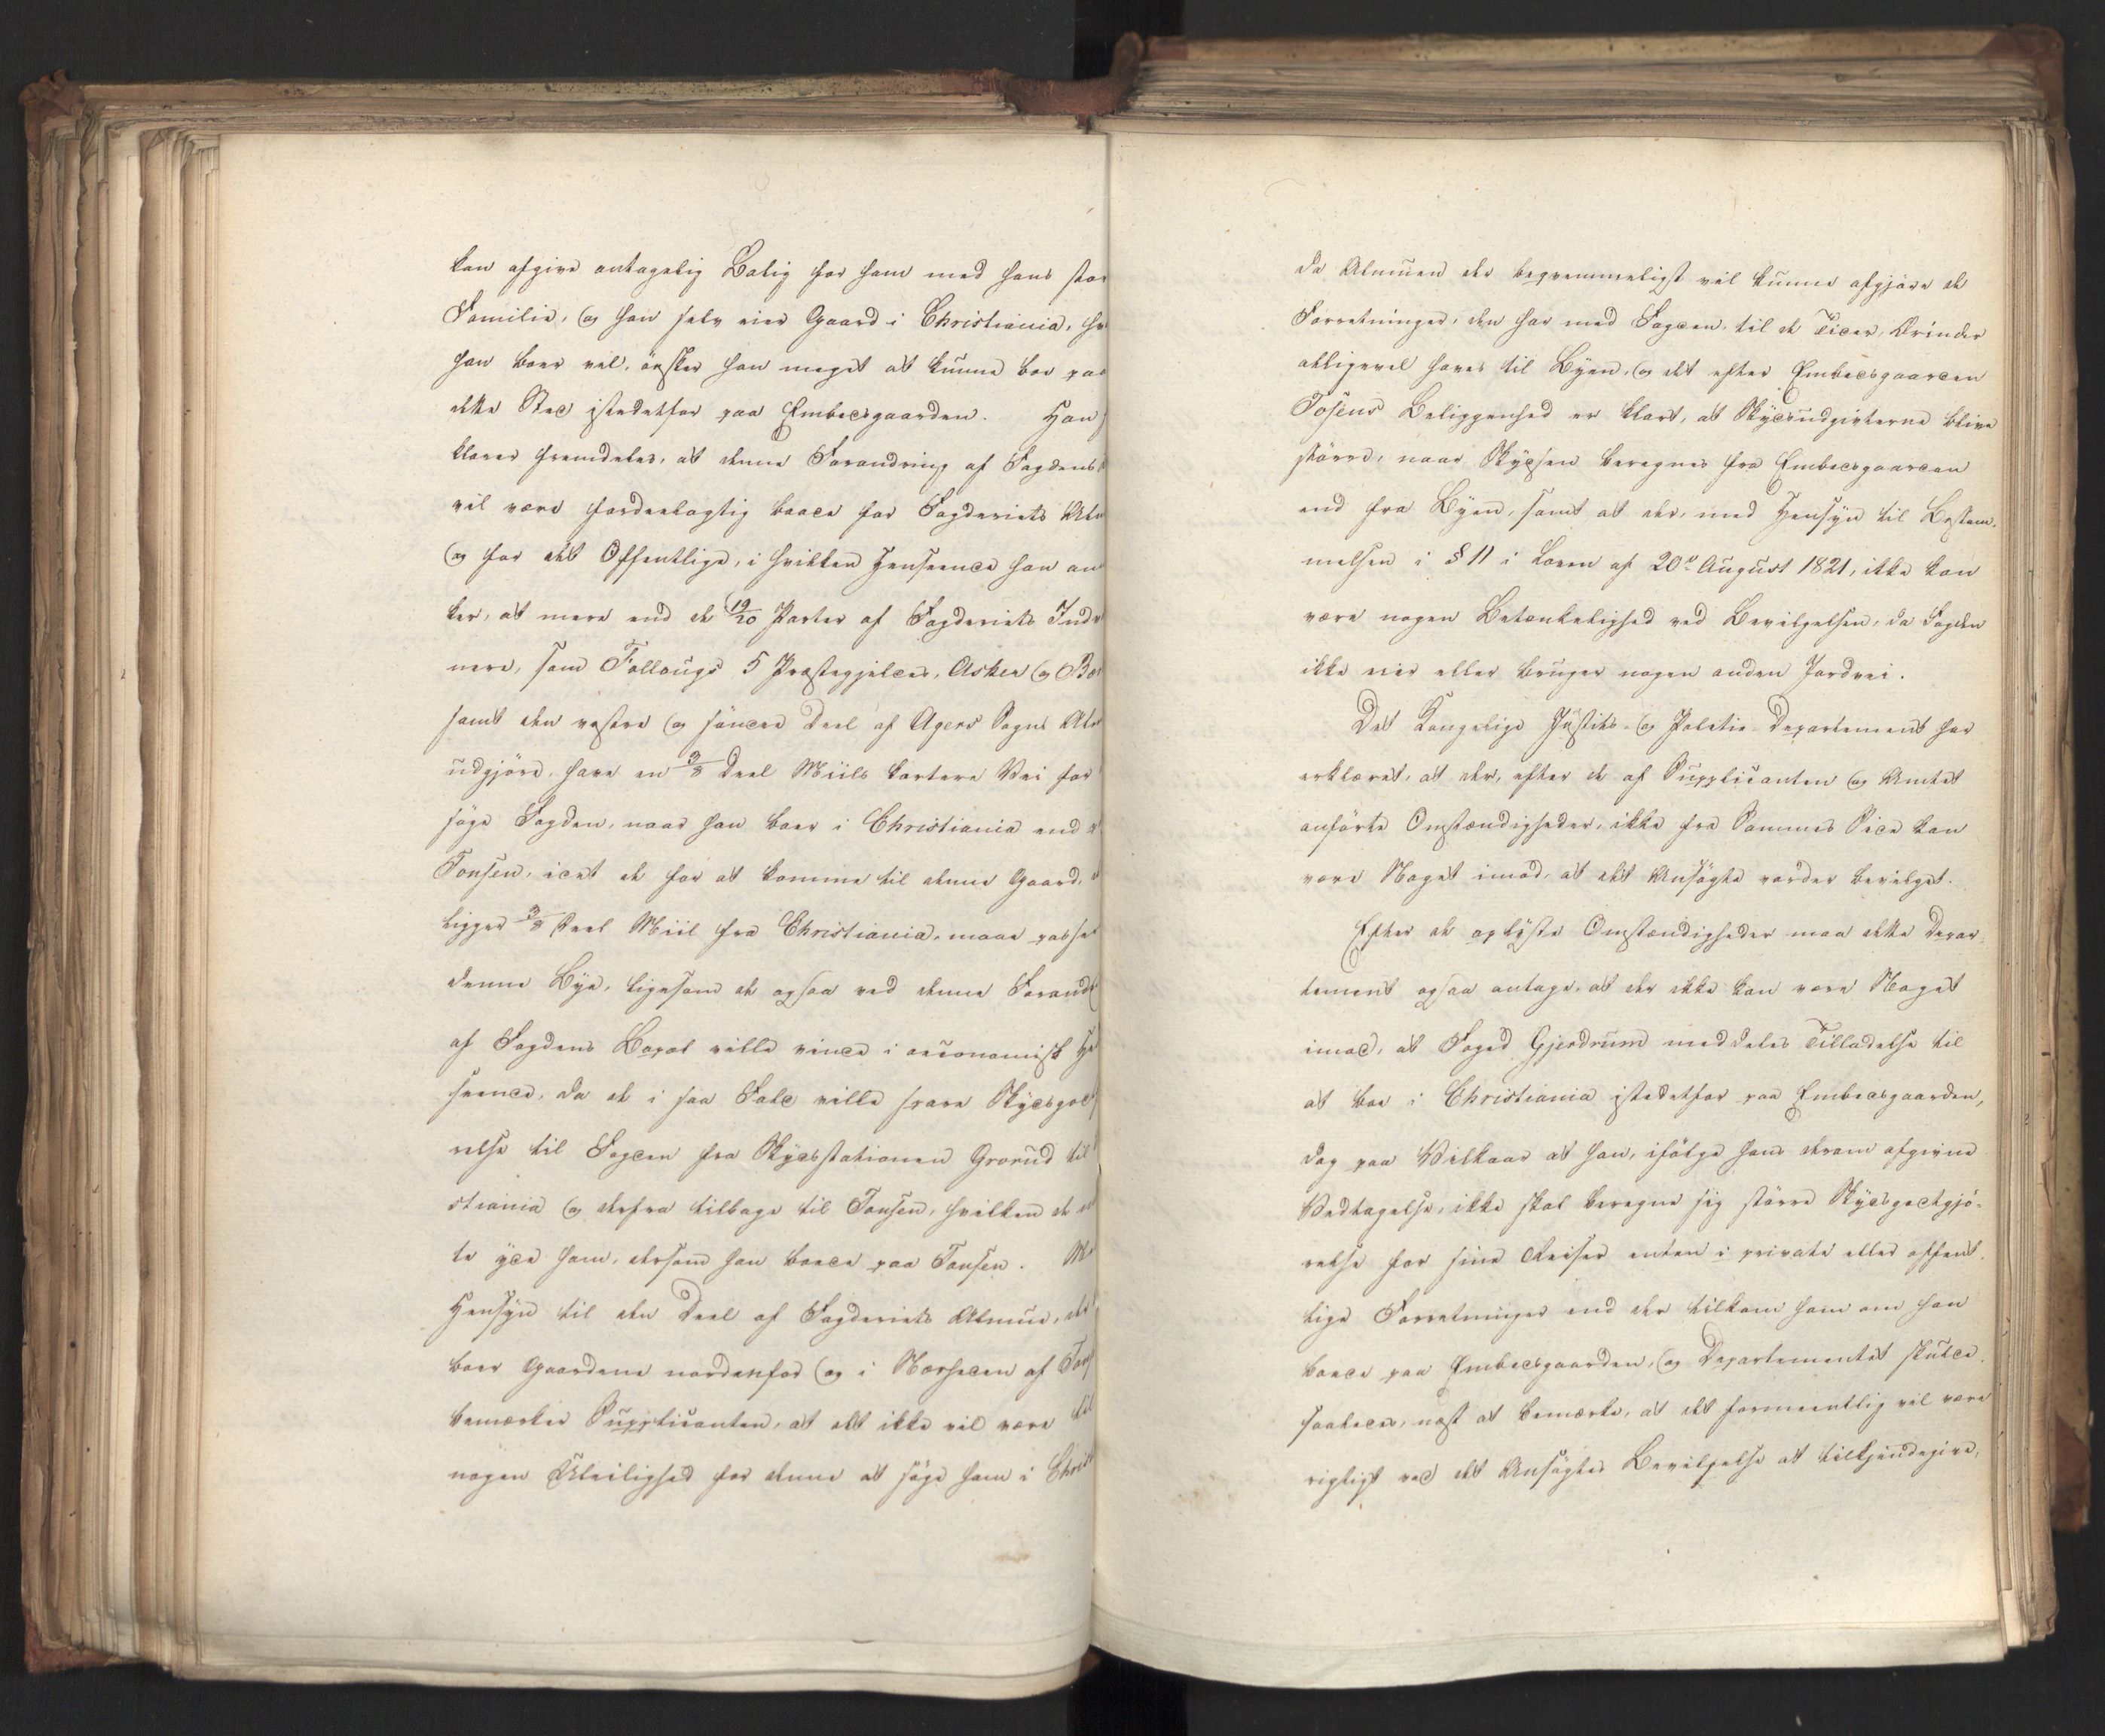 kan afgive antagelig Bolig for ham med hans stor
Familie, og han selv eier Gaard i Christiania, hv
han boer vel, önsker han meget at kunne boe paa
dette Sted istedetfor paa Embedsgaarden. Han
klarer fremdeles, at denne Forandring af Fogdens
vil være fordeelagtig baade for Fogderiets Alm
og for det Offentlige, i hvilken Henseende han an
ker, at mere end de 19/20 Parter af Fogderiets Indv
nere, som Follougs 5 Præstegjelder, Asker og Bær
samt den vestre og söndre Deel af Agers Sogns Alm
udgjöre, have en 3/8 Deel Miils kortere Vei for
söge Fogden, naar han boer i Christiania end
Tonsen, idet de for at komme til denne Gaard,
ligger 3/8 Deel Miil fra Christiania, maae passe
denne Bye, ligesom de ogsaa ved denne Forand
af Fogdens Bopæl ville vinde i oeconomisk He
seende, da de i saa Fald ville spare Skydsgod
relse til Fogden fra Skydsstationen Grorud til
stiania og derfra tilbage til Tonsen, hvilken de
te yde ham, dersom han boede paa Tonsen. Me
Hensyn til den Deel af Fogderiets Almue, der
boer Gaardene nordenfor og i Nærheden af Tons
bemærker Supplicanten, at det ikke vil være til
nogen Uleilighed for denne at söge ham i Christ
da Almuen der beqvemmeligst vil kunne afgjöre de
Forretninger, den har med Fogden, til de Tider, Ærinder
alligevel haves til Byen, og det efter Embedsgaarden
Tosens Beliggenhed er klart, at Skydsudgivterne blive
större, naar Skydsen beregnes fra Embedsgaarden
end fra Byen, samt at der, med Hensyn til Bestem-
melsen i § 11 i Loven af 20de August 1821, ikke kan
være nogen Betænkelighed ved Bevilgelsen, da Fogden
ikke eier eller bruger nogen anden Jordvei.
Det Kongelige Justits- og Politie-Departement har
erklæret, at der, efter de af Supplicanten og Amtet
anförte Omstændigheder, ikke fra Sammes Side kan
være Noget imod, at det Ansögte vorder bevilget.
Efter de oplyste Omstændigheder maa dette Depar-
tement ogsaa antage, at der ikke kan være Noget
imod, at Foged Gjerdrum meddeles Tilladelse til
at boe i Christiania istedetfor paa Embedsgaarden,
dog paa Vilkaar at han, ifölge hans derom afgivne
Vedtagelse, ikke skal beregne sig större Skydsgodtgjö-
relse for sine Reiser enten i private eller offent-
lige Forretninger end der tilkom ham om han
boede paa Embedsgaarden, og Departementet skulde
saaledes, næst at bemærke, at det formeentlig vil være
rigtigst ved det Ansögtes Bevilgelse at tilkjendegive,